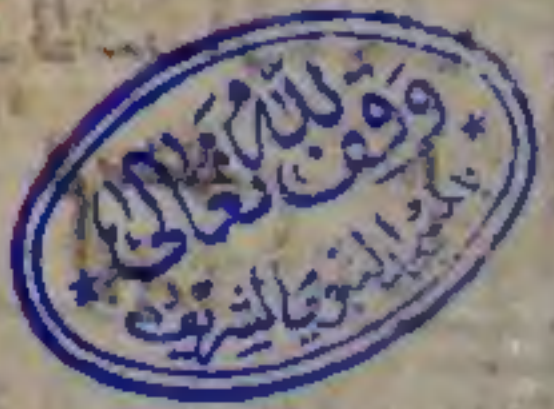 وقف لله تعالى
بالحرم النبوي الشريف